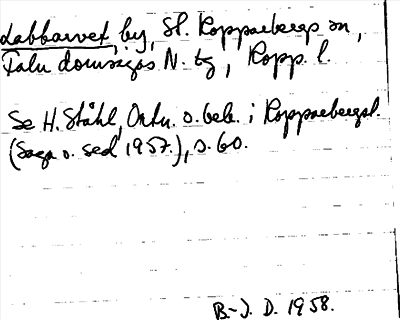 Labbarvet, by, St. Kopparbergs sn,
Falu domsagas N. tg, Kopp. l.
Se H. Ståhl, Ortn. o. beb. i Kopparbergsl.
(Saga o. sed 1957), s. 60.
B.-J. D. 1958.